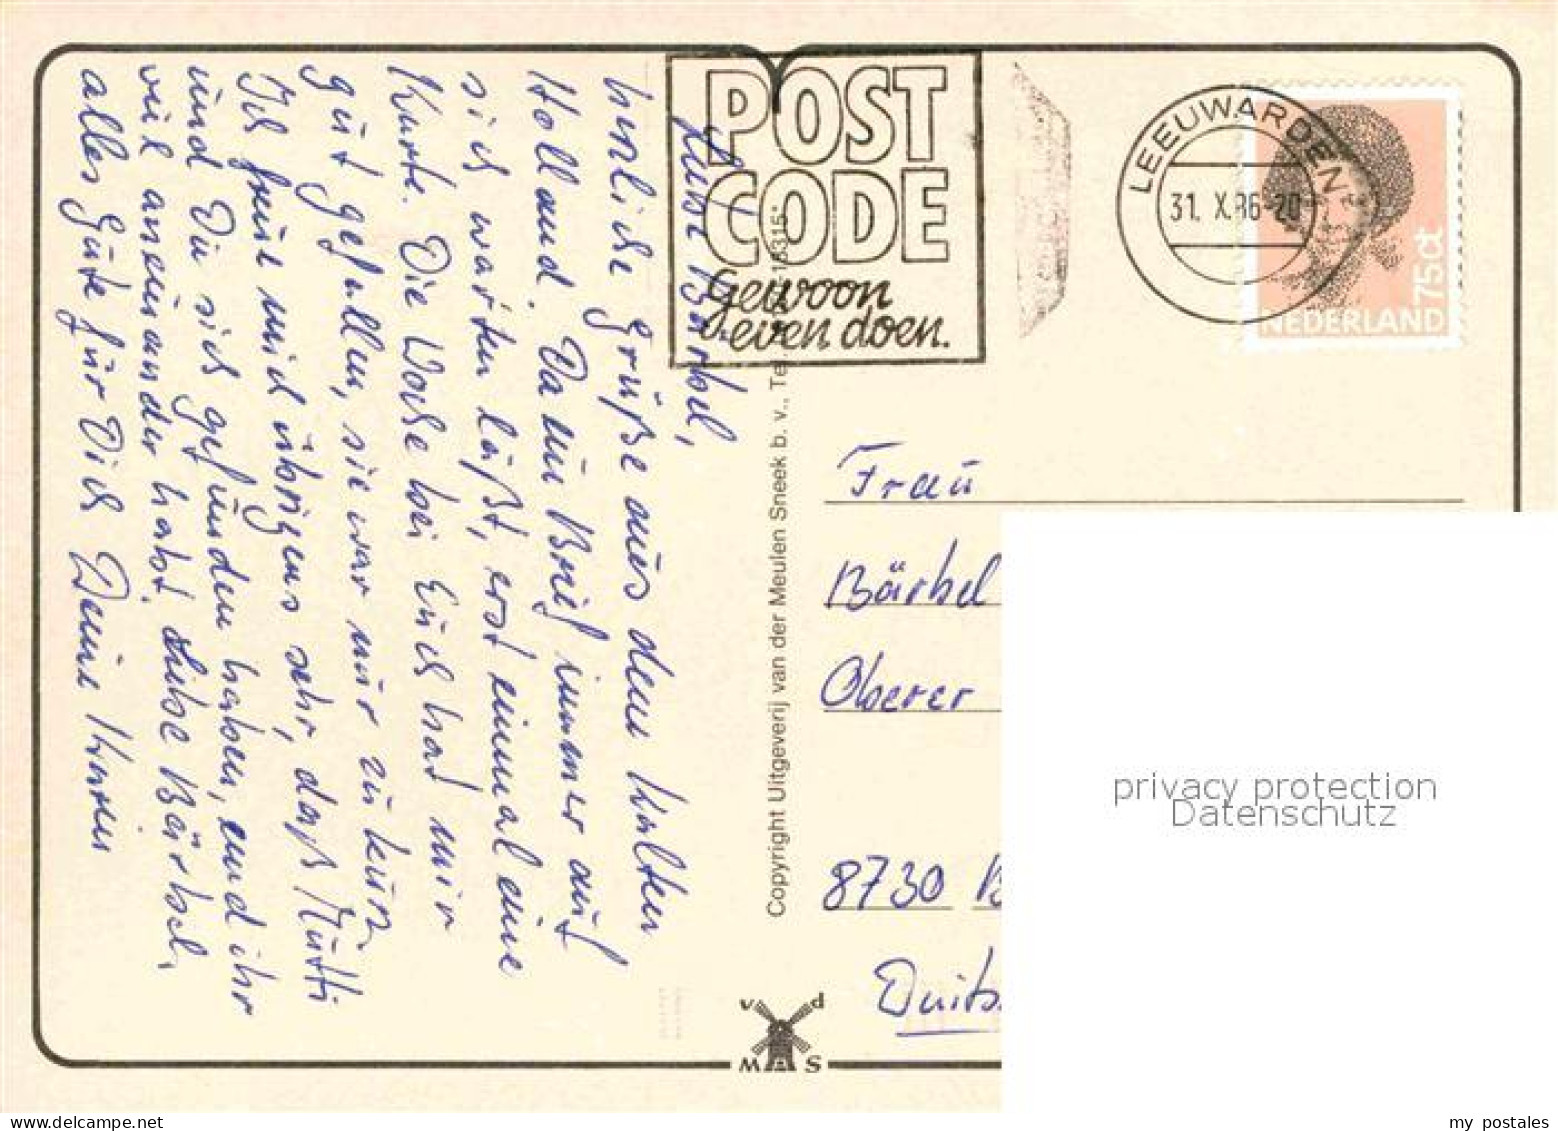 POST
CODE
gewoon
even doen.
LEEUWARDEN
31. X.86-20
75ct
NEDERLAND
Liebe Bärbel,
herzliche Grüße aus dem kalten
Holland. Da ein Brief immer auf
sich warten läßt, erst einmal eine
Karte. Die Woche bei Euch hat mir
gut gefallen, sie war nur zu kurz.
Ich freue mich übrigens sehr, daß Mutti
und Du sich gefunden haben, und ihr
viel aneinander habt. Liebe Bärbel,
alles Gute für Dich Deine Karin
Copyright Uitgeverij van der Meulen Sneek b. v., Te 15315*
Frau
Bärbel
Oberer
8730 B
Duits
v d
M S
privacy protection
Datenschutz
my postales